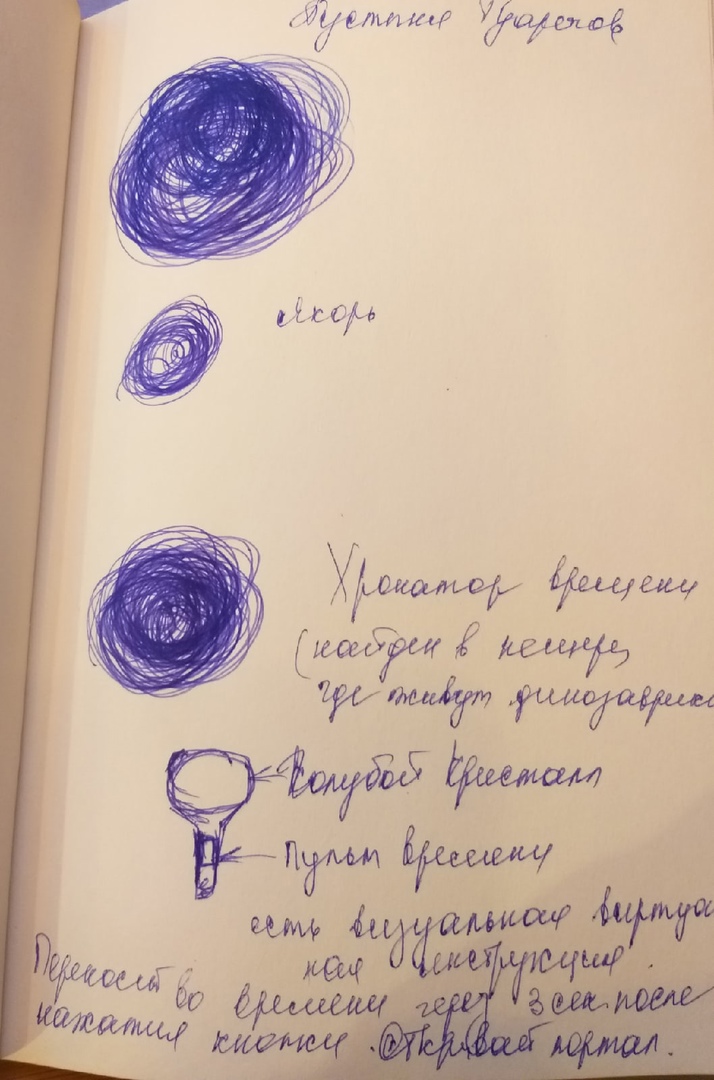 Пустыня Туарегов
Якорь
Хронатор времени
(найден в пещере,
где живут динозаврики
Голубой Кристалл
Пульт времени
есть визуальная виртуа
ная инструкция.
Переносит во времени через 3 сек. после
нажатия кнопки. Открывай портал.